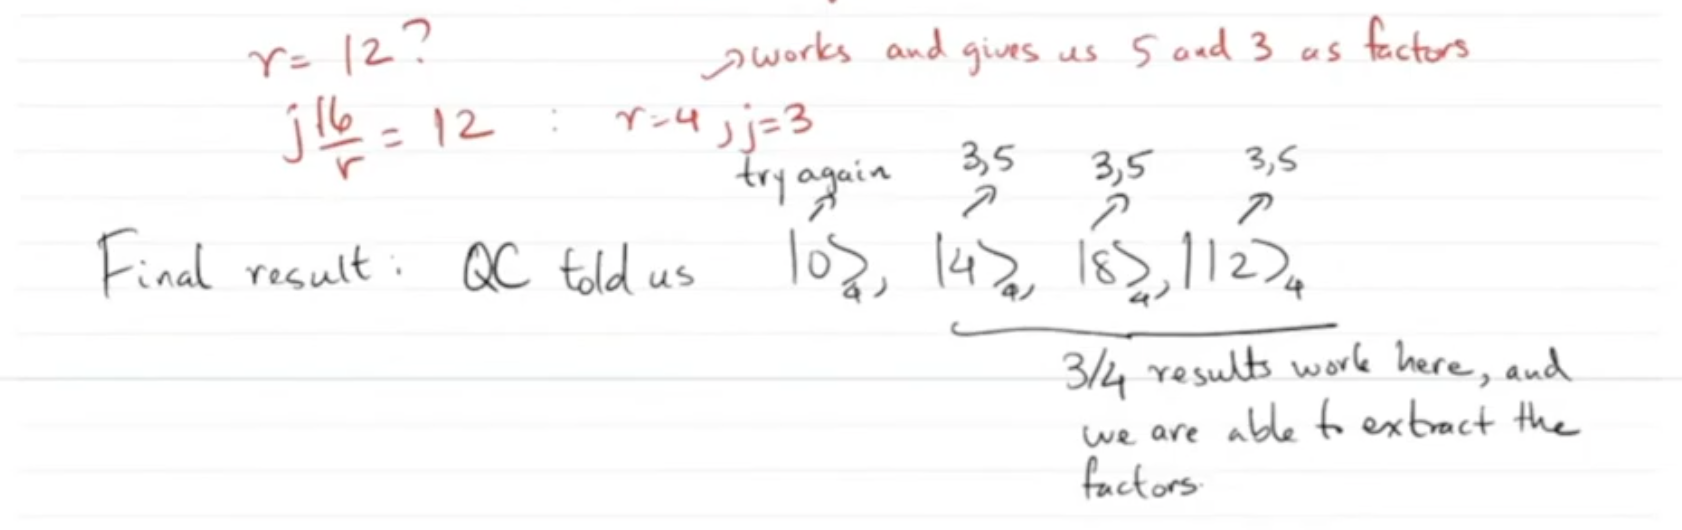 r = 12?
↗ works and gives us 5 and 3 as factors
j 16/r = 12 : r=4, j=3
try again 3,5 3,5 3,5
Final result: QC told us |0⟩₄, |4⟩₄, |8⟩₄, |12⟩₄
3/4 results work here, and
we are able to extract the
factors.